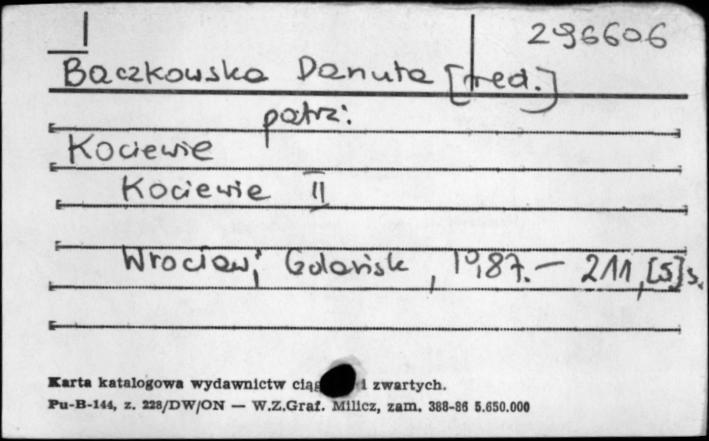 296606
Baczkowska Danuta [red.]
patrz:
Kociewie
Kociewie II
Wrocław; Gdańsk, 1987. - 211, [5] s.
Karta katalogowa wydawnictw i zwartych.
Pu-B-144, z. 228/DW/ON — W.Z.Graf. Milicz, zam. 388-86 5.650.000